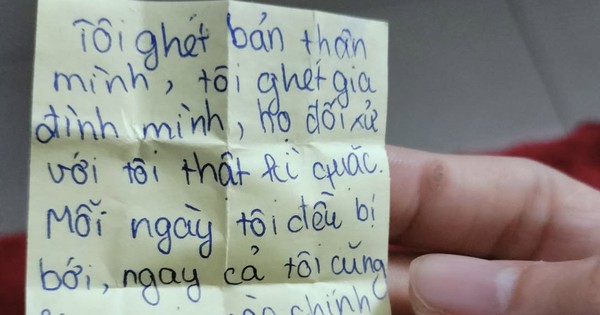 Tôi ghét bản thân
mình, tôi ghét gia
đình mình, họ đối xử
với tôi thật kì quặc.
Mỗi ngày tôi đều bị
bới, ngay cả tôi cũng
chính